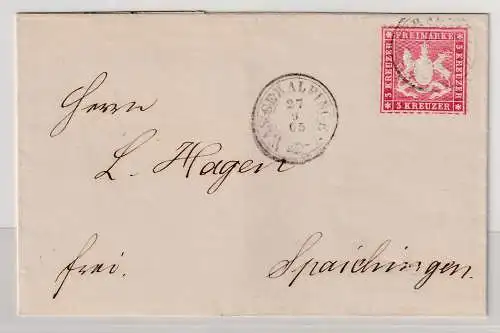 FREIMARKE
3 KREUZER
3 KREUZER
3 KREUZER
WASSERALFINGEN
27
9
65
Herrn
L. Hagen
frei.
Spaichingen.